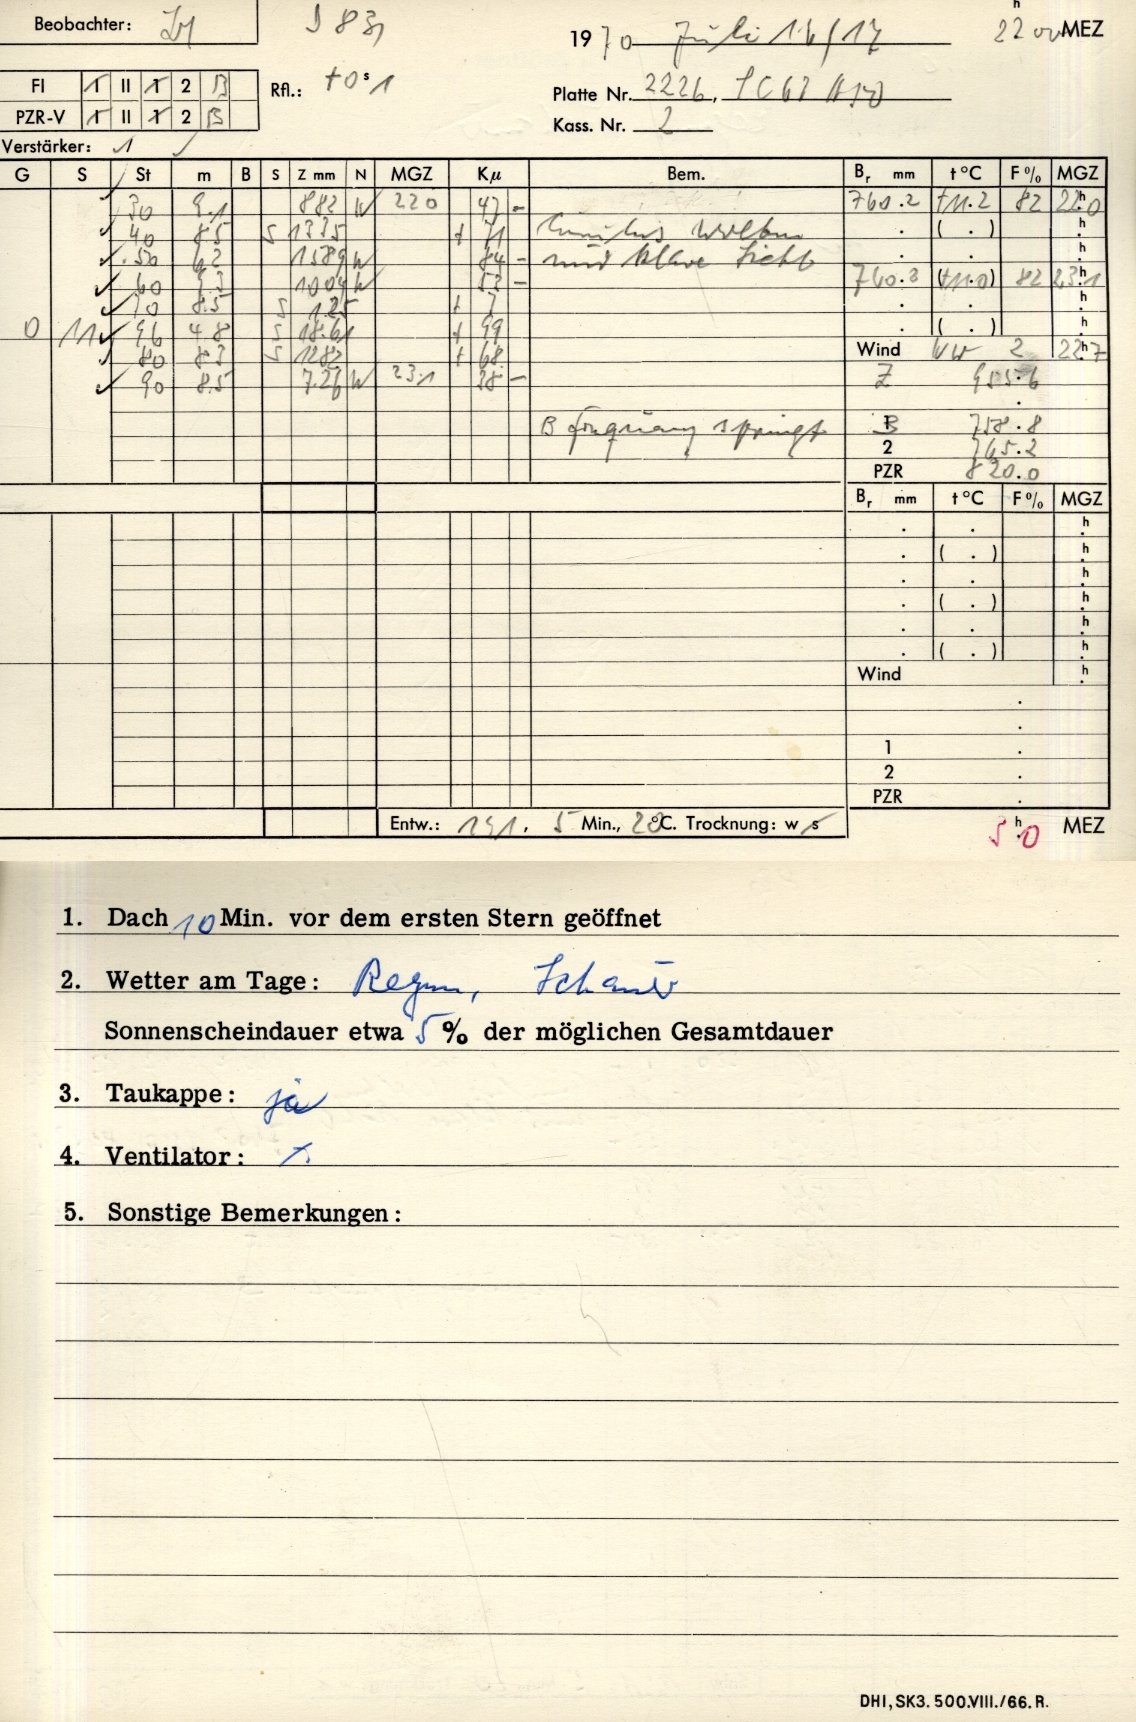 Beobachter:
I 83,
1970 Juli 16/17
22 00 MEZ
FI 1 II 1 2 B
Rfl.: +0ˢ1
Platte Nr. 2226,
PZR-V 1 II 1 2 B
Kass. Nr. 2
Verstärker: 1
G S St m B S Z mm N MGZ Kμ Bem. Bᵣ mm t °C F % MGZ
30 9.1 882 W 220 43 - 760.2 +11.2 82 22ʰ0
40 8.5 S 1335 + 71 Cumulus Wolken . ( . ) ʰ
50 6.2 1589 W 84 - und klare Sicht . .
60 9.3 1004 W 53 - 760.2 (+11.0) 82 23ʰ1
70 8.5 S 1.25 + 7 ʰ
0 11 96 4.8 S 18.61 + 99 . ( . ) ʰ
80 8.3 S 1282 + 68 Wind W 2 22ʰ7
90 8.5 7.26 W 23.1 38 - Z 955.6
B springt B 758.8
2 765.2
PZR 820.0
Bᵣ mm t °C F % MGZ
. . ʰ
. ( . ) ʰ
. . ʰ
. ( . ) ʰ
. . ʰ
. ( . ) ʰ
Wind ʰ
.
.
1 .
2 .
PZR .
Entw.: 191, 5 Min., 20 °C. Trocknung: w s
5 ʰ 0 MEZ
1. Dach 10 Min. vor dem ersten Stern geöffnet
2. Wetter am Tage: Regen, Schauer
Sonnenscheindauer etwa 5 % der möglichen Gesamtdauer
3. Taukappe: ja
4. Ventilator:
5. Sonstige Bemerkungen:
DHI, SK3. 500.VIII./66. R.